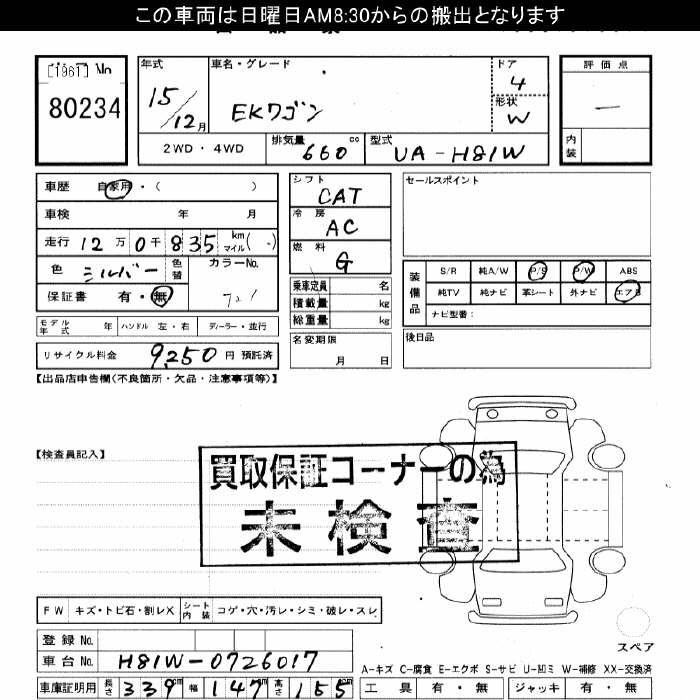 この車両は日曜日AM8:30からの搬出となります
[1961] No
80234
年式
15/12月
車名・グレード
EKワゴン
ドア
4
形状
W
評価点
—
内装
2WD・4WD
排気量 660 cc
型式 UA-H81W
車歴 自家用・( )
車検 年 月
走行 12万0千835 km マイル( )
色 シルバー 色替
カラーNo.
保証書 有・無
モデル年式 年 ハンドル 左・右 ディーラー・並行
リサイクル料金 9,250 円 預託済
シフト
CAT
冷房
AC
燃料
G
乗車定員 名
積載量 kg
総重量 kg
名変期限
月 日
セールスポイント
装備品
S/R 純A/W P/S P/W ABS
純TV 純ナビ 革シート 外ナビ エアB
ナビ型番:
後日品
【出品店申告欄(不良箇所・欠品・注意事項等)】
【検査員記入】
買取保証コーナーの為
未検査
FW キズ・トビ石・割レX シート内装 コゲ・穴・汚レ・シミ・破レ・スレ
登録No.
車台No. H81W-0726017
車庫証明用 長さ 339cm 幅 147cm 高さ 155cm
スペア
A-キズ C-腐食 E-エクボ S-サビ U-凹ミ W-補修 XX-交換済
工具 有・無 ジャッキ 有・無